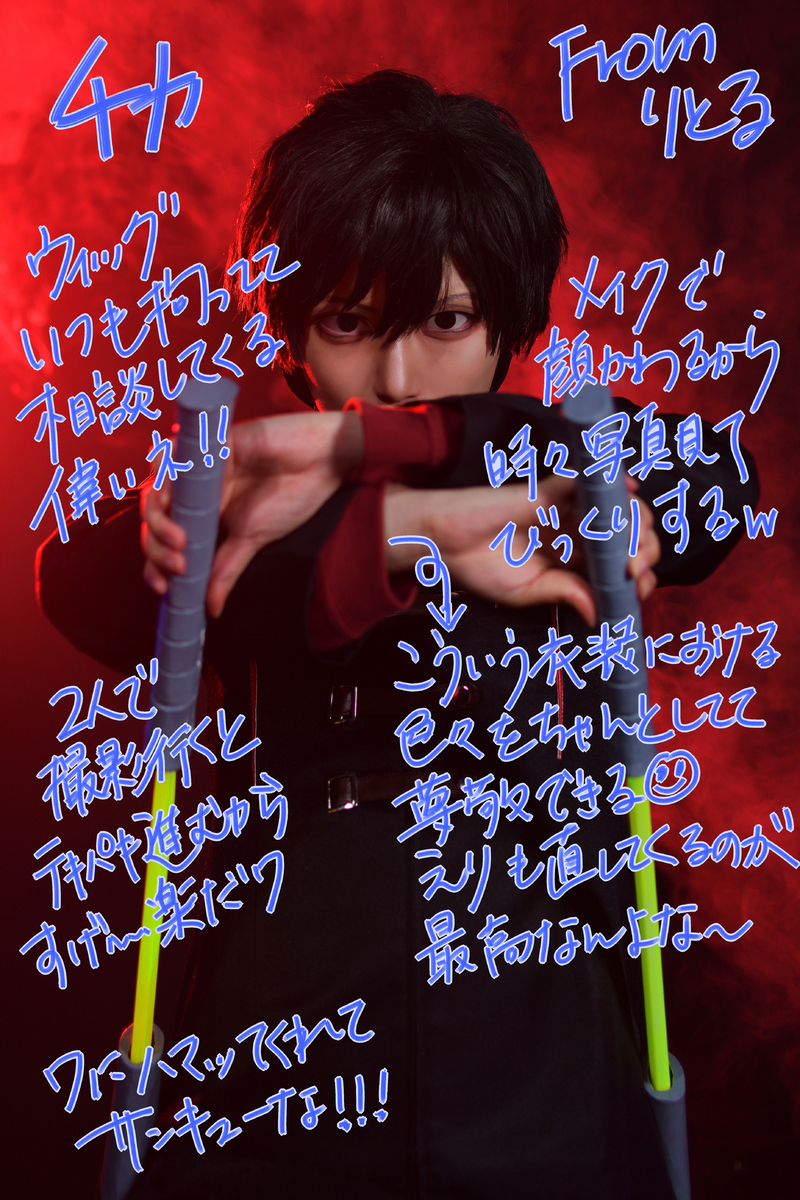 チカ
From
りとる
ウィッグ
いつも拘ってて
相談してくる
偉いネ!!
メイクで
顔かわるから
時々写真見て
びっくりするw
こういう衣装における
色々をちゃんとしてて
尊敬できる
えりも直してくるのが
最高なんよな〜
2人で
撮影行くと
テキパキ進むから
すげ〜楽だワ
ワにハマッてくれて
サンキューな!!!